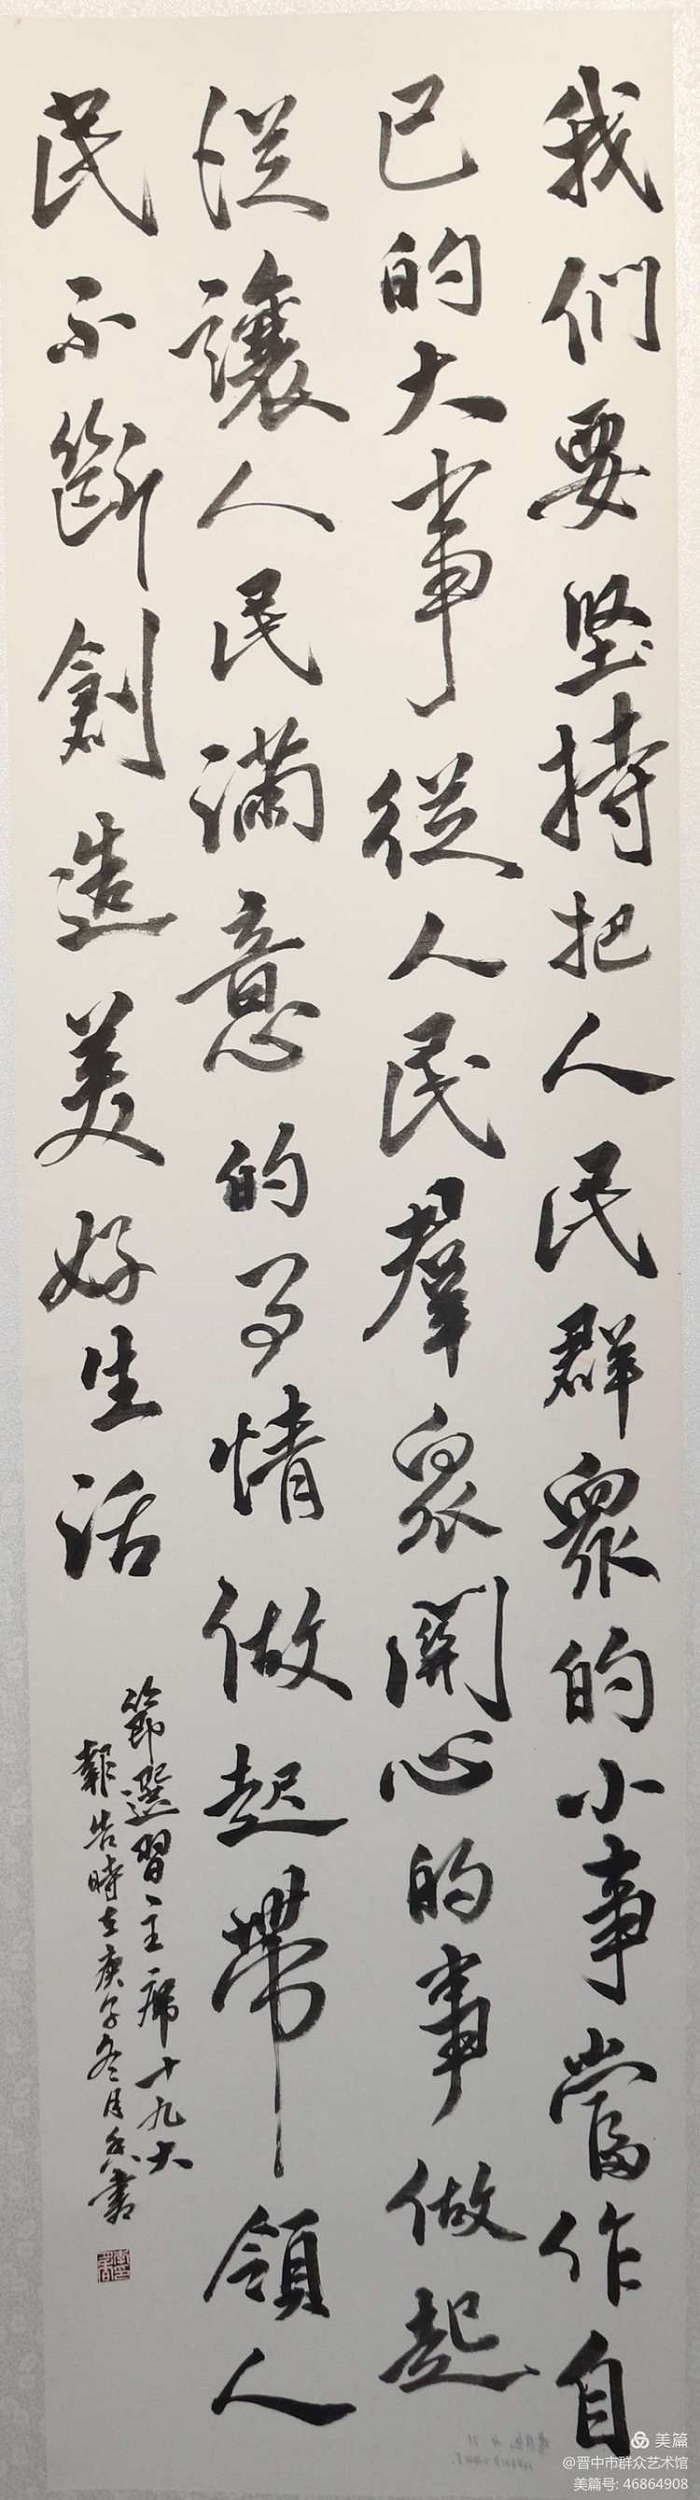 我们要坚持把人民群眾的小事當作自
己的大事從人民羣眾開心的事做起
從讓人民滿意的事情做起帶領人
民不斷創造美好生活
節選習主席十九大
報告時在庚子冬月 書
美篇
@晋中市群众艺术馆
美篇号: 46864908